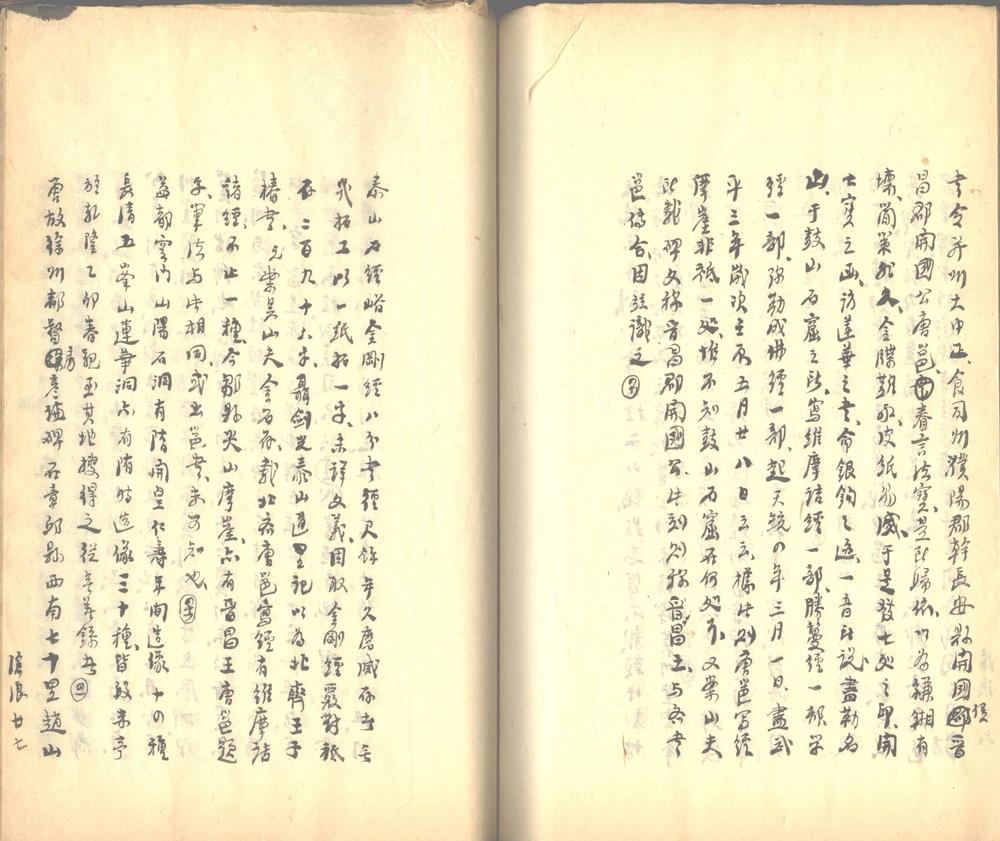 書令并州大中正食司州濮陽郡幹長安縣開國侯晋
昌郡開國公唐邕眷言法寶是所歸依以為縑緗有
壞簡策非久金牒難求皮紙易滅于是發七処之印開
七寶之函訪蓮華之書命銀鉤之迹一音所說盡勒名
山于鼓山石窟之所寫維摩詰經一部勝鬘經一部孛
經一部弥勒成佛經一部起天統四年三月一日盡武
平三年歲次壬辰五月廿八日云云據此則唐邕寫經
摩崖非秪一処惟不知鼓山石窟在何処耳又案山夫
所載碑文称晋昌郡開國公此刻則称晋昌王与齐書
邕傳合因茲識之
泰山石經峪金剛經八分書徑尺餘年久磨滅存者無
幾拓工以一紙拓一字未詳文義因取金剛經覈對秪
存二百九十六字聶劍光泰山道里記以為北齊王子
椿書元案吴山夫金石存載北齐唐邕寫經有維摩詰
諸經不止一種今鄒縣尖山摩崖亦有晋昌王唐邕題
字筆法与此相同或出邕書未可知也
益都雲门山陽石洞有隋開皇仁壽年间造像十四種
長清五峯山連華洞亦有隋时造像三十種皆段赤亭
于乾隆乙卯春親至其地搜得之從無著錄者
唐故徐州都督房彦謙碑在章邱縣西南七十里趙山
滄浪廿七